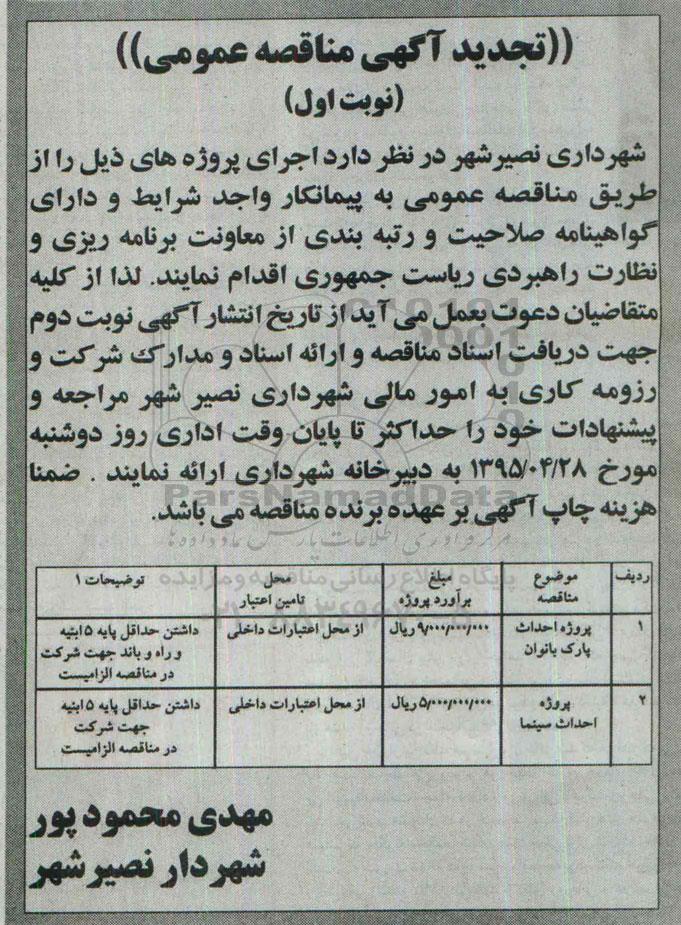 ((تجدید آگهی مناقصه عمومی))
(نوبت اول)
شهرداری نصیرشهر در نظر دارد اجرای پروژه های ذیل را از
طریق مناقصه عمومی به پیمانکار واجد شرایط و دارای
گواهینامه صلاحیت و رتبه بندی از معاونت برنامه ریزی و
نظارت راهبردی ریاست جمهوری اقدام نمایند. لذا از کلیه
متقاضیان دعوت بعمل می آید از تاریخ انتشار آگهی نوبت دوم
جهت دریافت اسناد مناقصه و ارائه اسناد و مدارک شرکت و
رزومه کاری به امور مالی شهرداری نصیر شهر مراجعه و
پیشنهادات خود را حداکثر تا پایان وقت اداری روز دوشنبه
مورخ ۱۳۹۵/۰۴/۲۸ به دبیرخانه شهرداری ارائه نمایند . ضمنا
هزینه چاپ آگهی بر عهده برنده مناقصه می باشد.
ParsNamadData
پایگاه اطلاع رسانی مناقصه ومزایده
ردیف موضوع مناقصه مبلغ برآورد پروژه محل تامین اعتبار توضیحات ۱
۱ پروژه احداث پارک بانوان ۹/۰۰۰/۰۰۰/۰۰۰ ریال از محل اعتبارات داخلی داشتن حداقل پایه ۵ ابنیه
و راه و باند جهت شرکت
در مناقصه الزامیست
۲ پروژه احداث سینما ۵/۰۰۰/۰۰۰/۰۰۰ ریال از محل اعتبارات داخلی داشتن حداقل پایه ۵ ابنیه
جهت شرکت
در مناقصه الزامیست
مهدی محمود پور
شهردار نصیرشهر